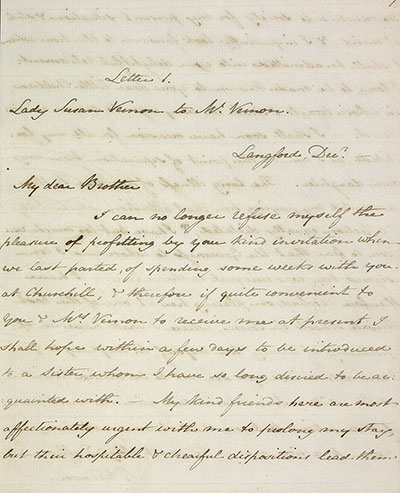 Letter 1.
Lady Susan Vernon to Mr. Vernon.
Langford, Decr.
My dear Brother
I can no longer refuse myself the
pleasure of profitting by your kind invitation when
we last parted, of spending some weeks with you
at Churchill, & therefore if quite convenient to
you & Mrs Vernon to receive me at present, I
shall hope within a few days to be introduced
to a Sister whom I have so long desired to be ac:
:quainted with. — My kind friends here are most
affectionately urgent with me to prolong my stay,
but their hospitable & chearful dispositions lead them